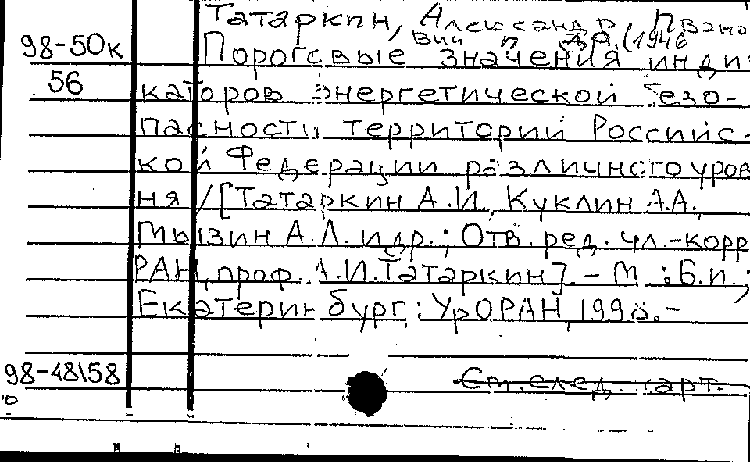 Татаркин, Александр Ивано
98-50к
вич и др. (1946
Пороговые значения инди
56
каторов энергетической безо-
пасности территорий Российс-
кой Федерации различного уров
ня / [Татаркин А.И., Куклин А.А.,
Мызин А.Л. и др.; Отв. ред. чл.-корр
РАН, проф. А.И. Татаркин]. - М.: Б.и.;
Екатеринбург: УрО РАН, 1998. -
98-48158
См. след. карт.